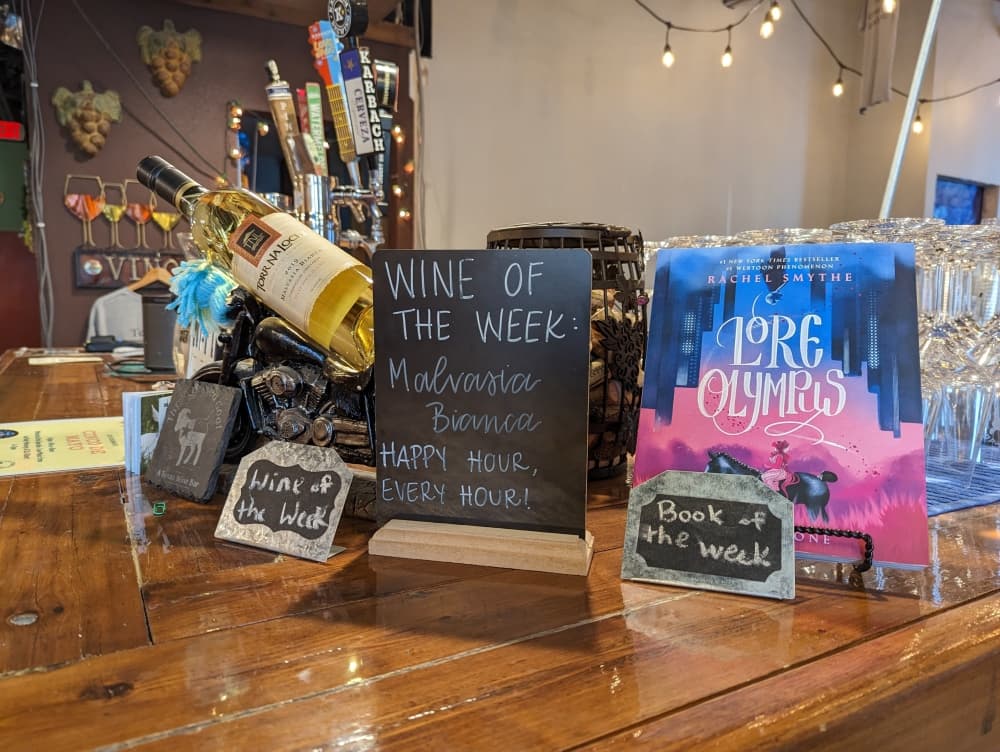 KARBACH
CERVEZA
VINO
TORR NA LOCH
2019
MALVASIA BIANCA
WINE OF
THE WEEK:
Malvasia
Bianca
HAPPY HOUR,
EVERY HOUR!
Wine of
the Week
#1 NEW YORK TIMES BESTSELLER
#1 WEBTOON PHENOMENON
RACHEL SMYTHE
LORE
OLYMPUS
ONE
Book of
the week